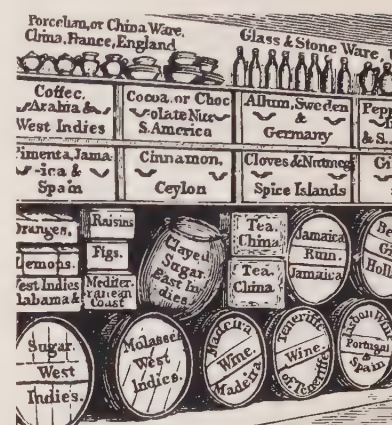 Porcelian, or China Ware.
China, France, England
Glass & Stone Ware
Coffee,
Arabia &
West Indies
Cocoa, or Choc
-olate Nuts
S. America
Allum, Sweden
&
Germany
Pep
&
& S.
Pimenta, Jama
-ica &
Spain
Cinnamon,
Ceylon
Cloves & Nutmeg
Spice Islands
Gi
Oranges.
Lemons.
West Indies
labama &
Raisins
Figs.
Mediter-
ranean
Coast
Clayed
Sugar.
East In-
dies.
Tea.
China.
Tea.
China.
Jamaica
Rum.
Jamaica
Be
G
Holl
Sugar.
West
Indies.
Molasses
West
Indies.
Madeira
Wine.
Madeira
Teneriffe
Wine.
of Teneriffe
Lisbon
Portugal
&
Spain